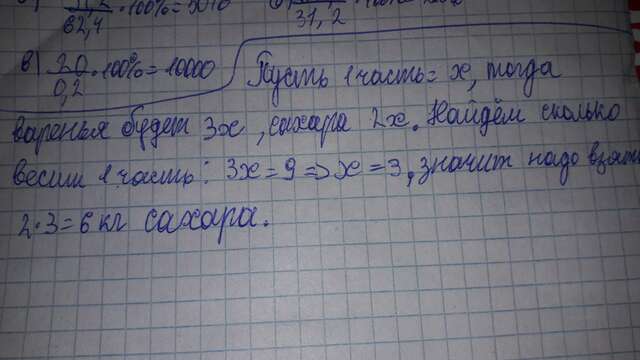 62,4 · 100% =
31,2
в) 20/0,2 · 100% = 10000
Пусть 1 часть = x, тогда
варенья будет 3x, сахара 2x. Найдём сколько
весит 1 часть: 3x = 9 => x = 3, значит надо взять
2·3=6 кг сахара.